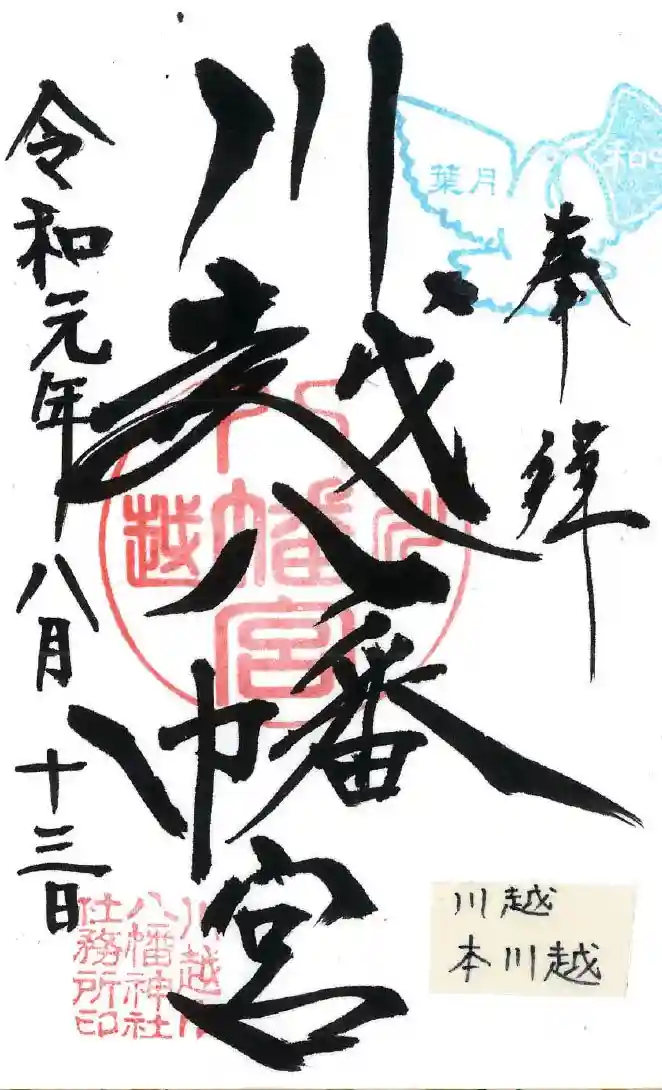 奉拝
葉月
和
川越八幡宮
令和元年八月十三日
川越
八幡宮
八幡神社
社務所印
川越
本川越